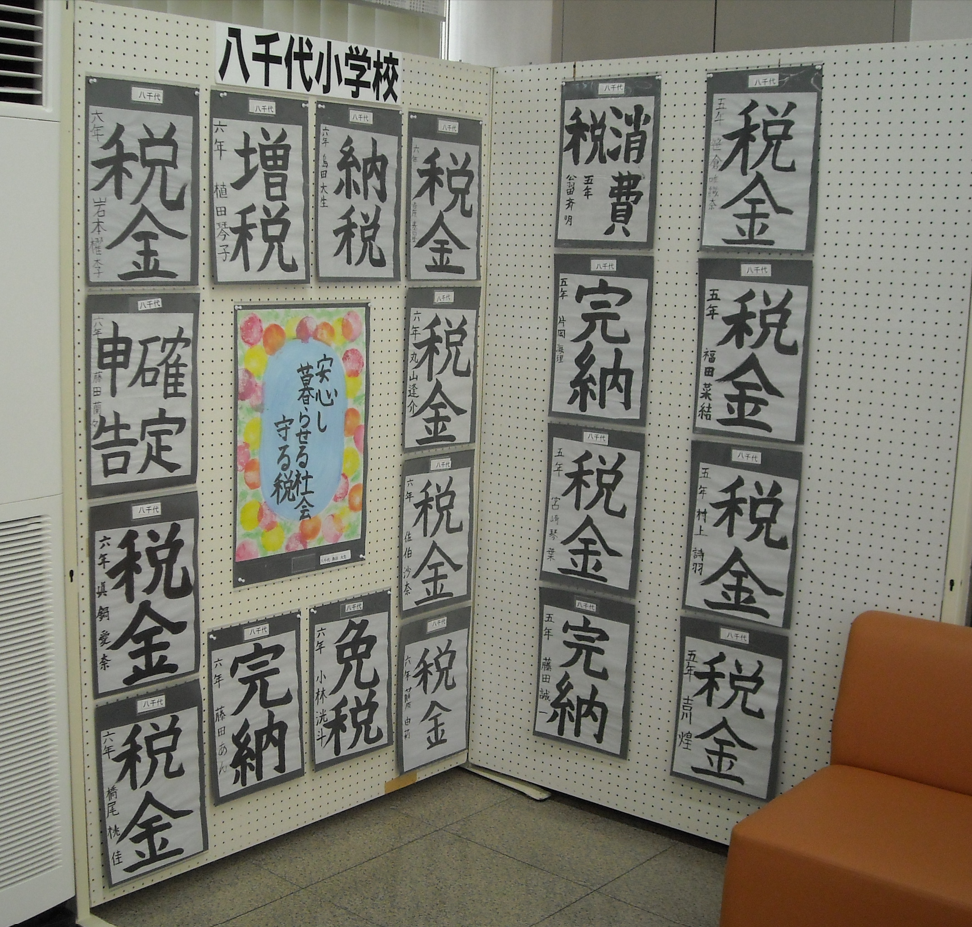 八千代小学校
八千代
税金
六年
八千代
増税
六年 植田琴子
八千代
納税
六年 島田大生
八千代
税金
六年
八千代
確定
申告
六年
安心し
暮らせる社会
守る税
八千代
税金
六年 丸山達介
八千代
税金
六年 佐伯沙奈
八千代
税金
六年
八千代
完納
六年 藤田あん
八千代
免税
六年 小林洸斗
八千代
税金
六年
八千代
税金
六年
八千代
消費
税
五年
八千代
税金
五年
八千代
完納
五年
八千代
税金
五年 福田菜結
八千代
税金
五年 宮崎琴葉
八千代
税金
五年 村上詩羽
八千代
完納
五年 藤田誠一
八千代
税金
五年 吉川煌